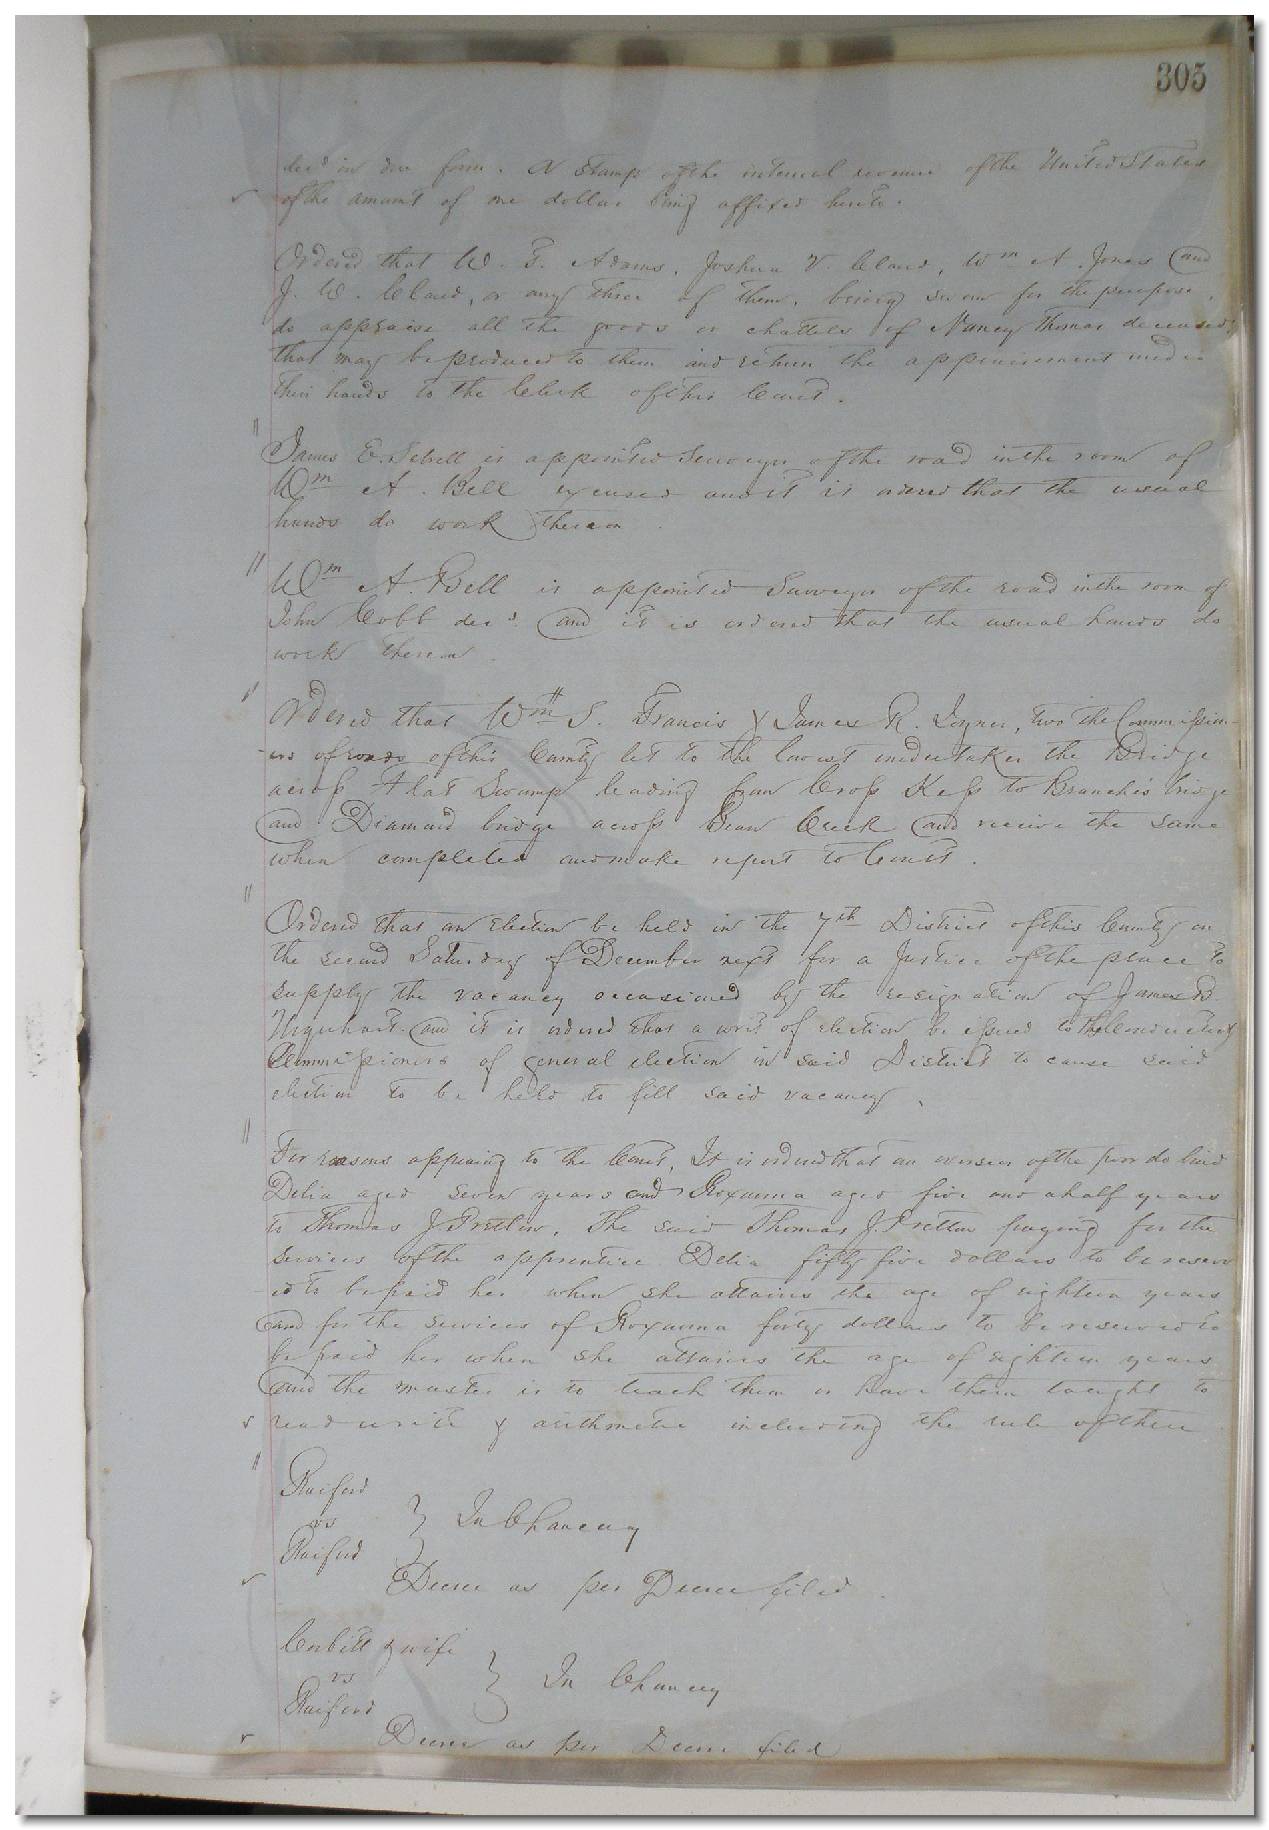 305
decd in due form. A Stamp of the internal revenue of the United States
of the amount of one dollar being affixed hereto.
Ordered that W. F. Adams, Joshua V. Claud, Wm A. Jones and
J. W. Claud, or any three of them, being sworn for the purpose,
do appraise all the goods or chattels of Nancy Thomas deceased,
that may be produced to them and return the appraisement under
their hands to the Clerk of this Court.
James E. Sebrell is appointed Surveyor of the road in the room of
Wm A. Bell excused and it is ordered that the usual
hands do work thereon.
Wm A. Bell is appointed Surveyor of the road in the room of
John Cobb decd. and it is ordered that the usual hands do
work thereon.
Ordered that Wm S. Francis & James R. Joyner, two the Commission-
-ers of roads of this County let to the lowest undertaker the Bridge
across Flat Swamp leading from Cross Keys to Branch's bridge
and Diamond bridge across Creek and receive the same
when completed and make report to Court.
Ordered that an Election be held in the 7th District of this County on
the second Saturday of December next for a Justice of the peace to
supply the vacancy occasioned by the resignation of James B.
Urquhart. and it is ordered that a writ of election be issued to the Conductor &
Commissioners of general election in said District to cause said
election to be held to fill said vacancy.
For reasons appearing to the Court, It is ordered that an overseer of the poor do bind
Delia aged seven years and Roxanna aged five and a half years
to Thomas J. Pretlow, The said Thomas J. Pretlow paying for the
services of the apprentice Delia fifty five dollars to be reserv
-ed to be paid her when she attains the age of eighteen years
and for the services of Roxanna forty dollars to be reserved to
be paid her when she attains the age of eighteen years
and the master is to teach them or have them taught to
read write & arithmetic including the rule of three
Raiford
vs } In Chancery
Raiford
Decree as per Decree filed.
Corbitt & wife
vs } In Chancery
Raiford
Decree as per Decree filed